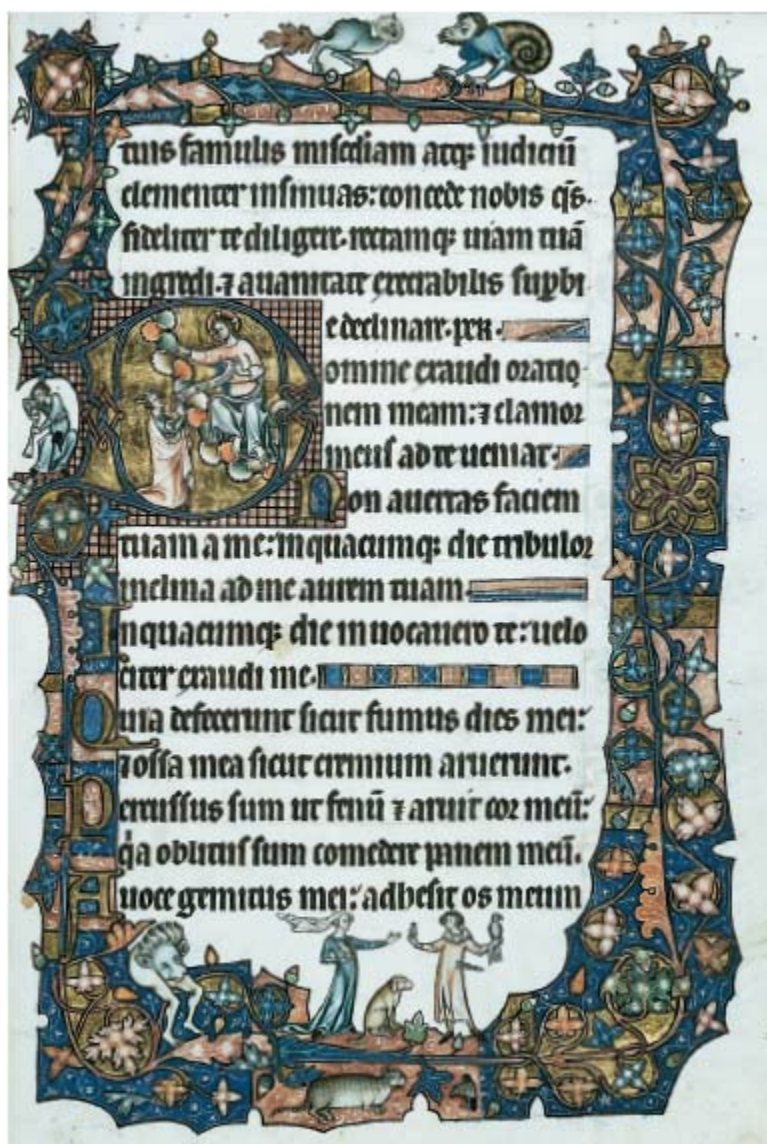 tuis famulis misc̄diam atq; iudiciū
clementer insinuas: concede nobis q̄s.
fideliter te diligere. rectamq; uiam tuā
ingredi. ⁊ a uanitate execrabilis sup̱bi
e declinare. per.
Domine exaudi oratio
nem meam: ⁊ clamor
meus ad te ueniat.
Non auertas faciem
tuam a me: in quacumq; die tribulor
inclina ad me aurem tuam.
In quacumq; die inuocauero te: uelo
citer exaudi me.
Quia defecerunt sicut fumus dies mei:
⁊ ossa mea sicut cremium aruerunt.
Percussus sum ut fenū ⁊ aruit cor meū:
q̇a oblitus sum comedere panem meū.
A uoce gemitus mei: adhesit os meum